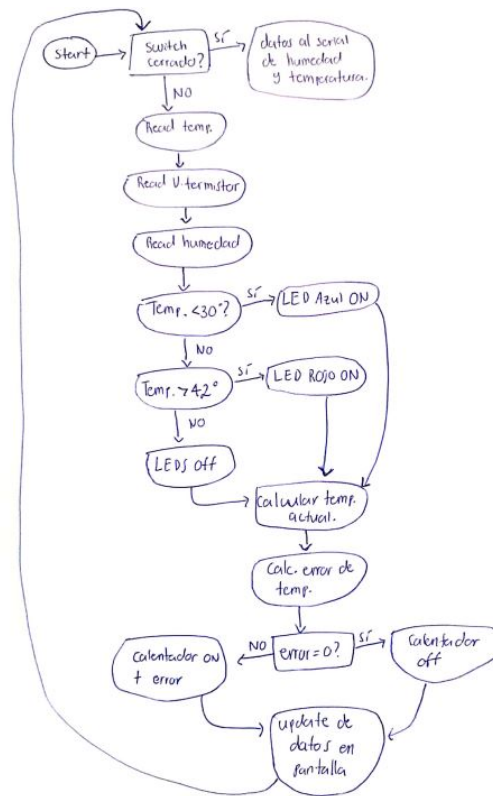 Start
Switch
cerrado?
sí
datos al serial
de humedad
y temperatura.
NO
Read temp.
Read V-termistor
Read humedad
Temp. <30°?
sí
LED Azul ON
NO
Temp. >42°
sí
LED ROJO ON
NO
LEDS off
Calcular temp.
actual.
Calc. error de
temp.
error=0?
NO
sí
Calentador ON
+ error
Calentador
off
update de
datos en
pantalla